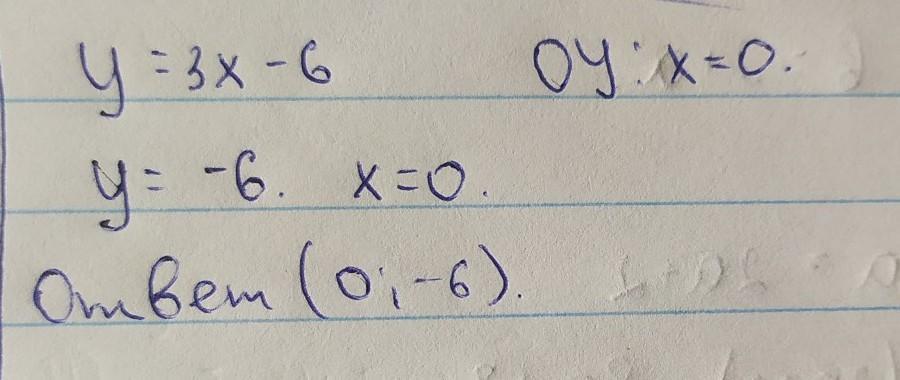 y = 3x - 6 OY: x = 0.
y = -6. x = 0.
Ответ (0; -6).